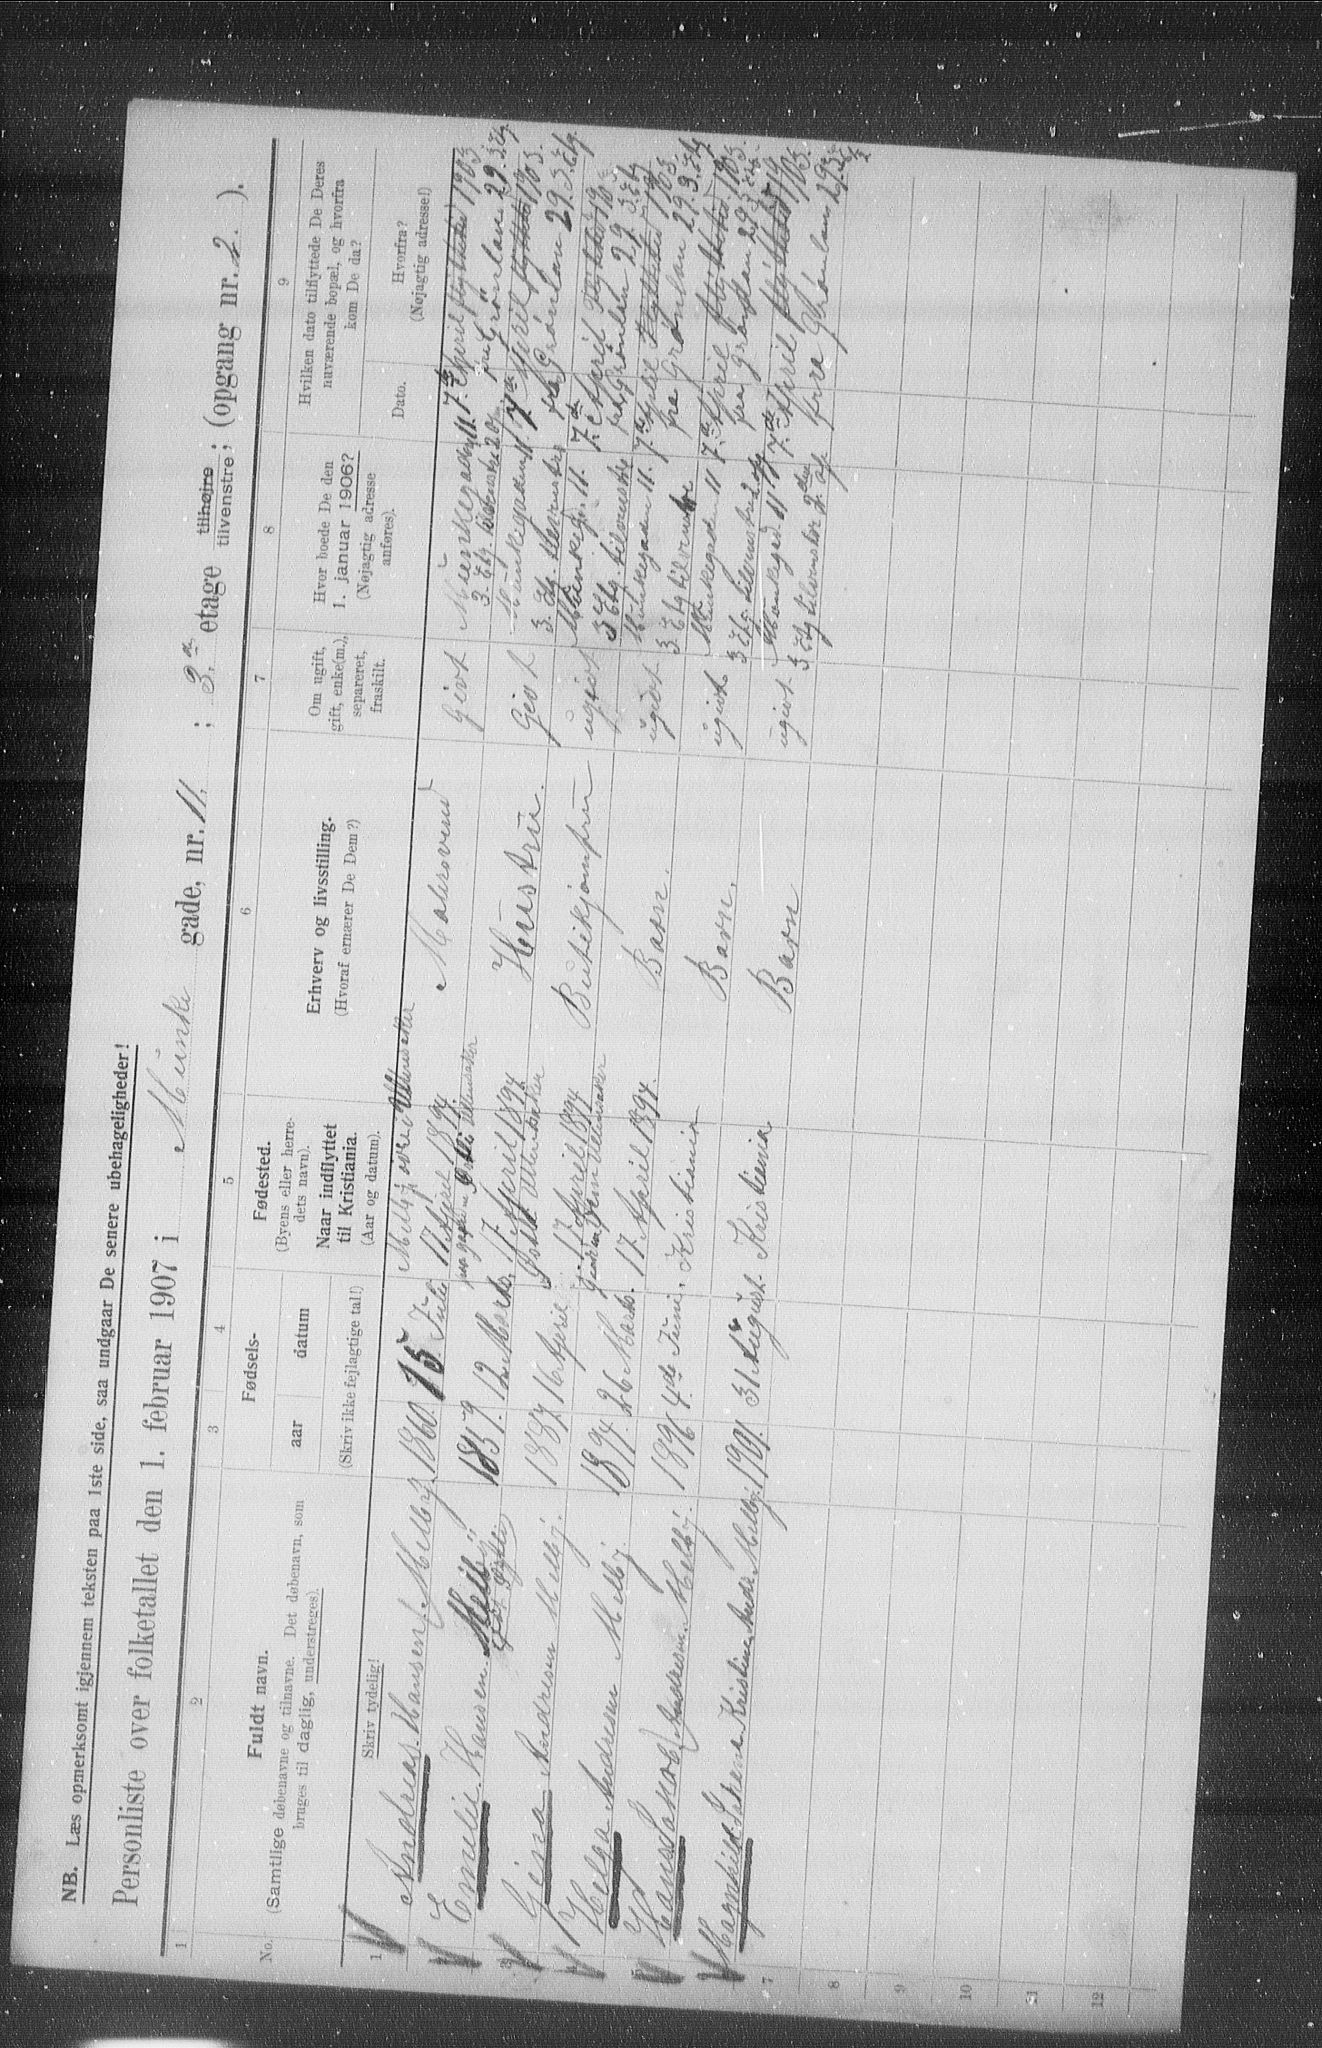 NB. Læs opmerksomt igjennem teksten paa 1ste side, saa undgaar De senere ubehageligheder!
Personliste over folketallet den 1. februar 1907 i Münke gade, nr. 11, ; 3die etage tilhøjre tilvenstre; (opgang nr. 2. ).
1 2 3 4 5 6 7 8 9
No. Fuldt navn.
(Samtlige døbenavne og tilnavne. Det døbenavn, som
bruges til daglig, understreges).
Fødsels-
aar datum
Fødested.
(Byens eller herre-
dets navn).
Naar indflyttet
til Kristiania.
(Aar og datum).
Erhverv og livsstilling.
(Hvoraf ernærer De Dem?)
Om ugift,
gift, enke(m.),
separeret,
fraskilt.
Hvor boede De den
1. januar 1906?
(Nøjagtig adresse
anføres).
Hvilken dato tilflyttede De Deres
nuværende bopæl, og hvorfra
kom De da?
Dato. Hvorfra?
(Nøjagtig adresse!)
Skriv tydelig!
(Skriv ikke fejlagtige tal!)
1 Andreas Hansen Melby. 1860. 15 Juli 17 April 1897. Malersvend Givt Münkegaden 11. 7de April flyttet 1903.
3. Etg. fra Grönlan 29. 3. Etg.
Emelie Hansen Melby 1857. 12 Marts. 17 April 1897 Hüstrü. Givt Münkegaden 11 7de April flyttet 1903.
3. Etg. fra Grönlan 29. 3. Etg.
3 Gina Andresen Melby. 1887 16 April 17 April 1897 Butikjomfru ugivt Münkeg. 11. 7de April flyttet 1903
3 Etg. tilvenstre fra Grönlan 29. 3. Etg
Helga Andresen Melby. 1894. 26 Marts. 17 April 1897. Barn. ugivt Münkegaden 11. 7de April flyttet 1903.
3. Etg tilvenstre fra Grønlan 29. 3. Etg
Hans Jakob Andresen Melby. 1896 4de Juni. Kristiania Barn. ugivt Münkegaden 11 7de April flyttet 1903.
3 Etg. tilvenstre fra Grønlan 29 3 Etg.
Magnhild Johanne Kristine Andr. Melby. 1901. 31 August. Kristiania Barn ugivt Münkegad. 11 7de April flyttet 1903.
3 Etg tilvenstre fra Grønlan 29 3
7
8
9
10
11
12